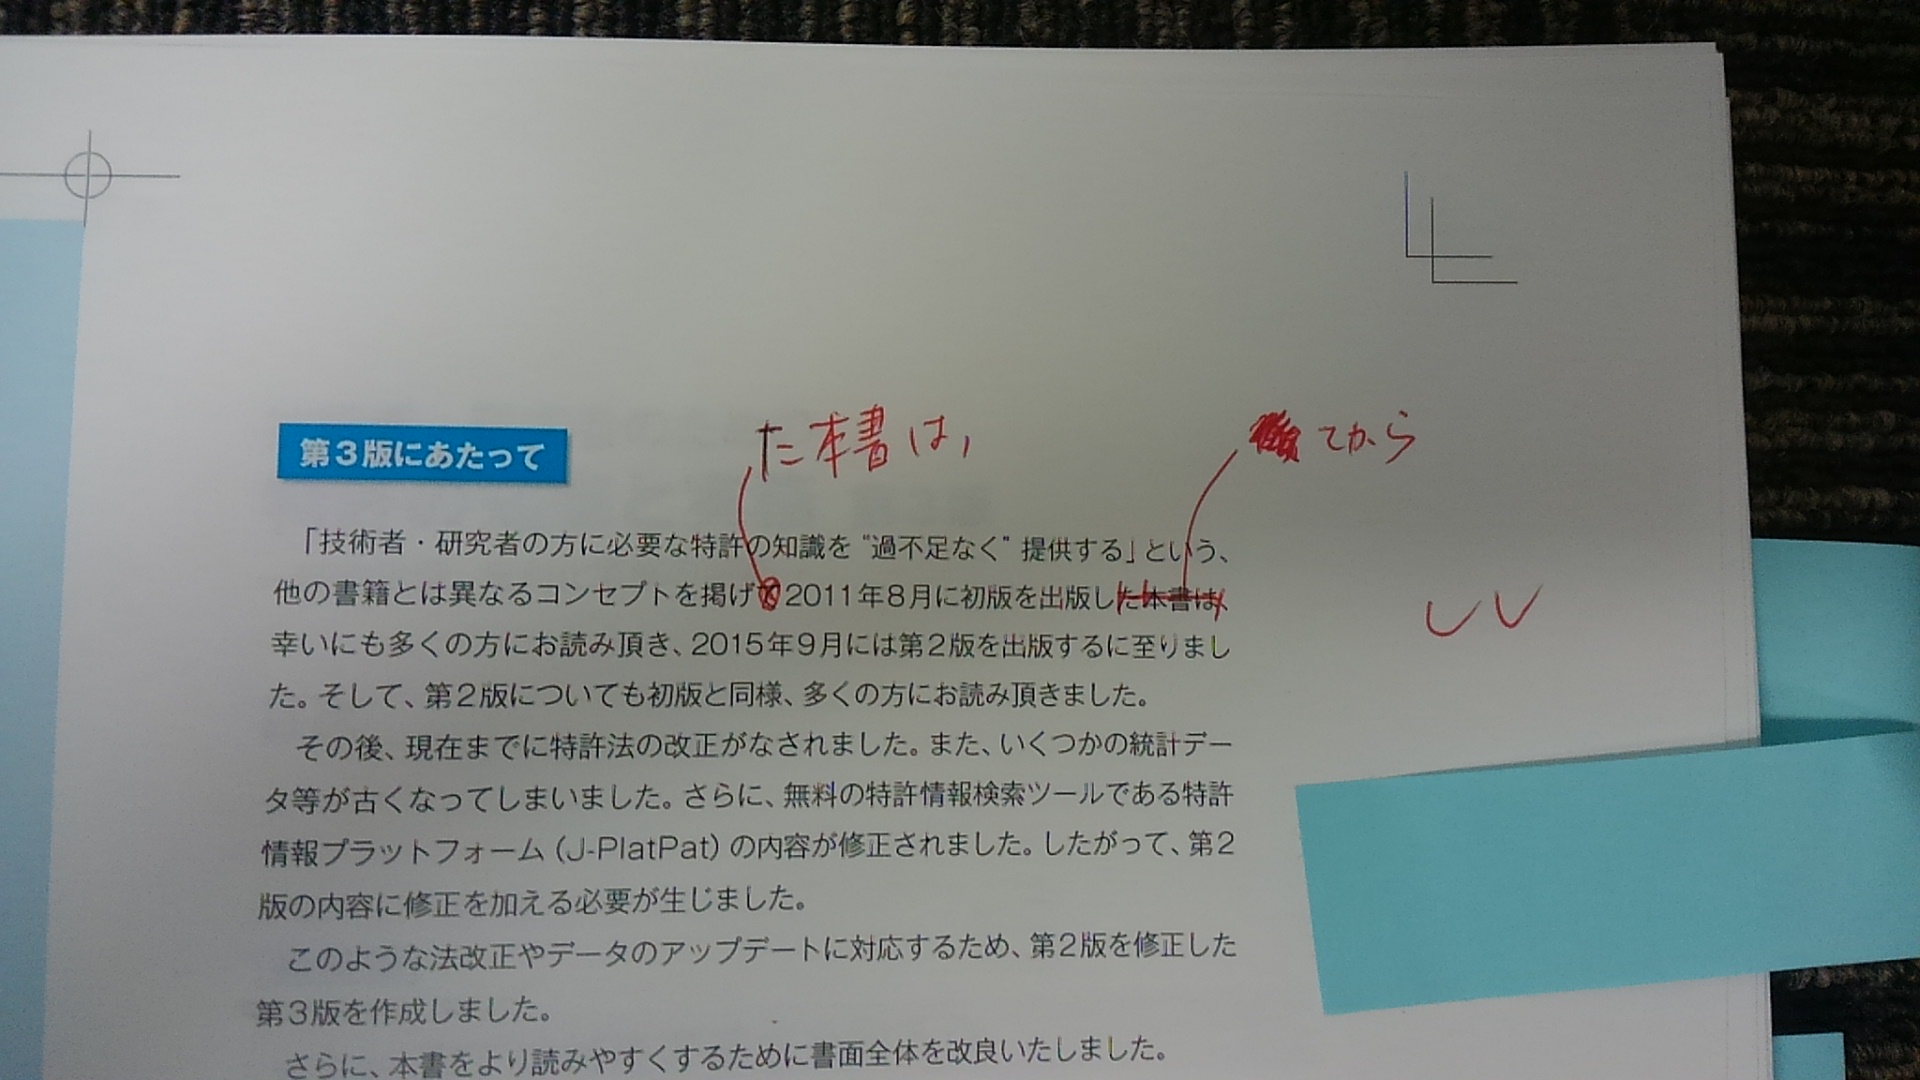 た本書は,
てから
第3版にあたって
「技術者・研究者の方に必要な特許の知識を“過不足なく”提供する」という、
他の書籍とは異なるコンセプトを掲げて2011年8月に初版を出版した本書は、
幸いにも多くの方にお読み頂き、2015年9月には第2版を出版するに至りまし
た。そして、第2版についても初版と同様、多くの方にお読み頂きました。
その後、現在までに特許法の改正がなされました。また、いくつかの統計デー
タ等が古くなってしまいました。さらに、無料の特許情報検索ツールである特許
情報プラットフォーム（J-PlatPat）の内容が修正されました。したがって、第2
版の内容に修正を加える必要が生じました。
このような法改正やデータのアップデートに対応するため、第2版を修正した
第3版を作成しました。
さらに、本書をより読みやすくするために書面全体を改良いたしました。